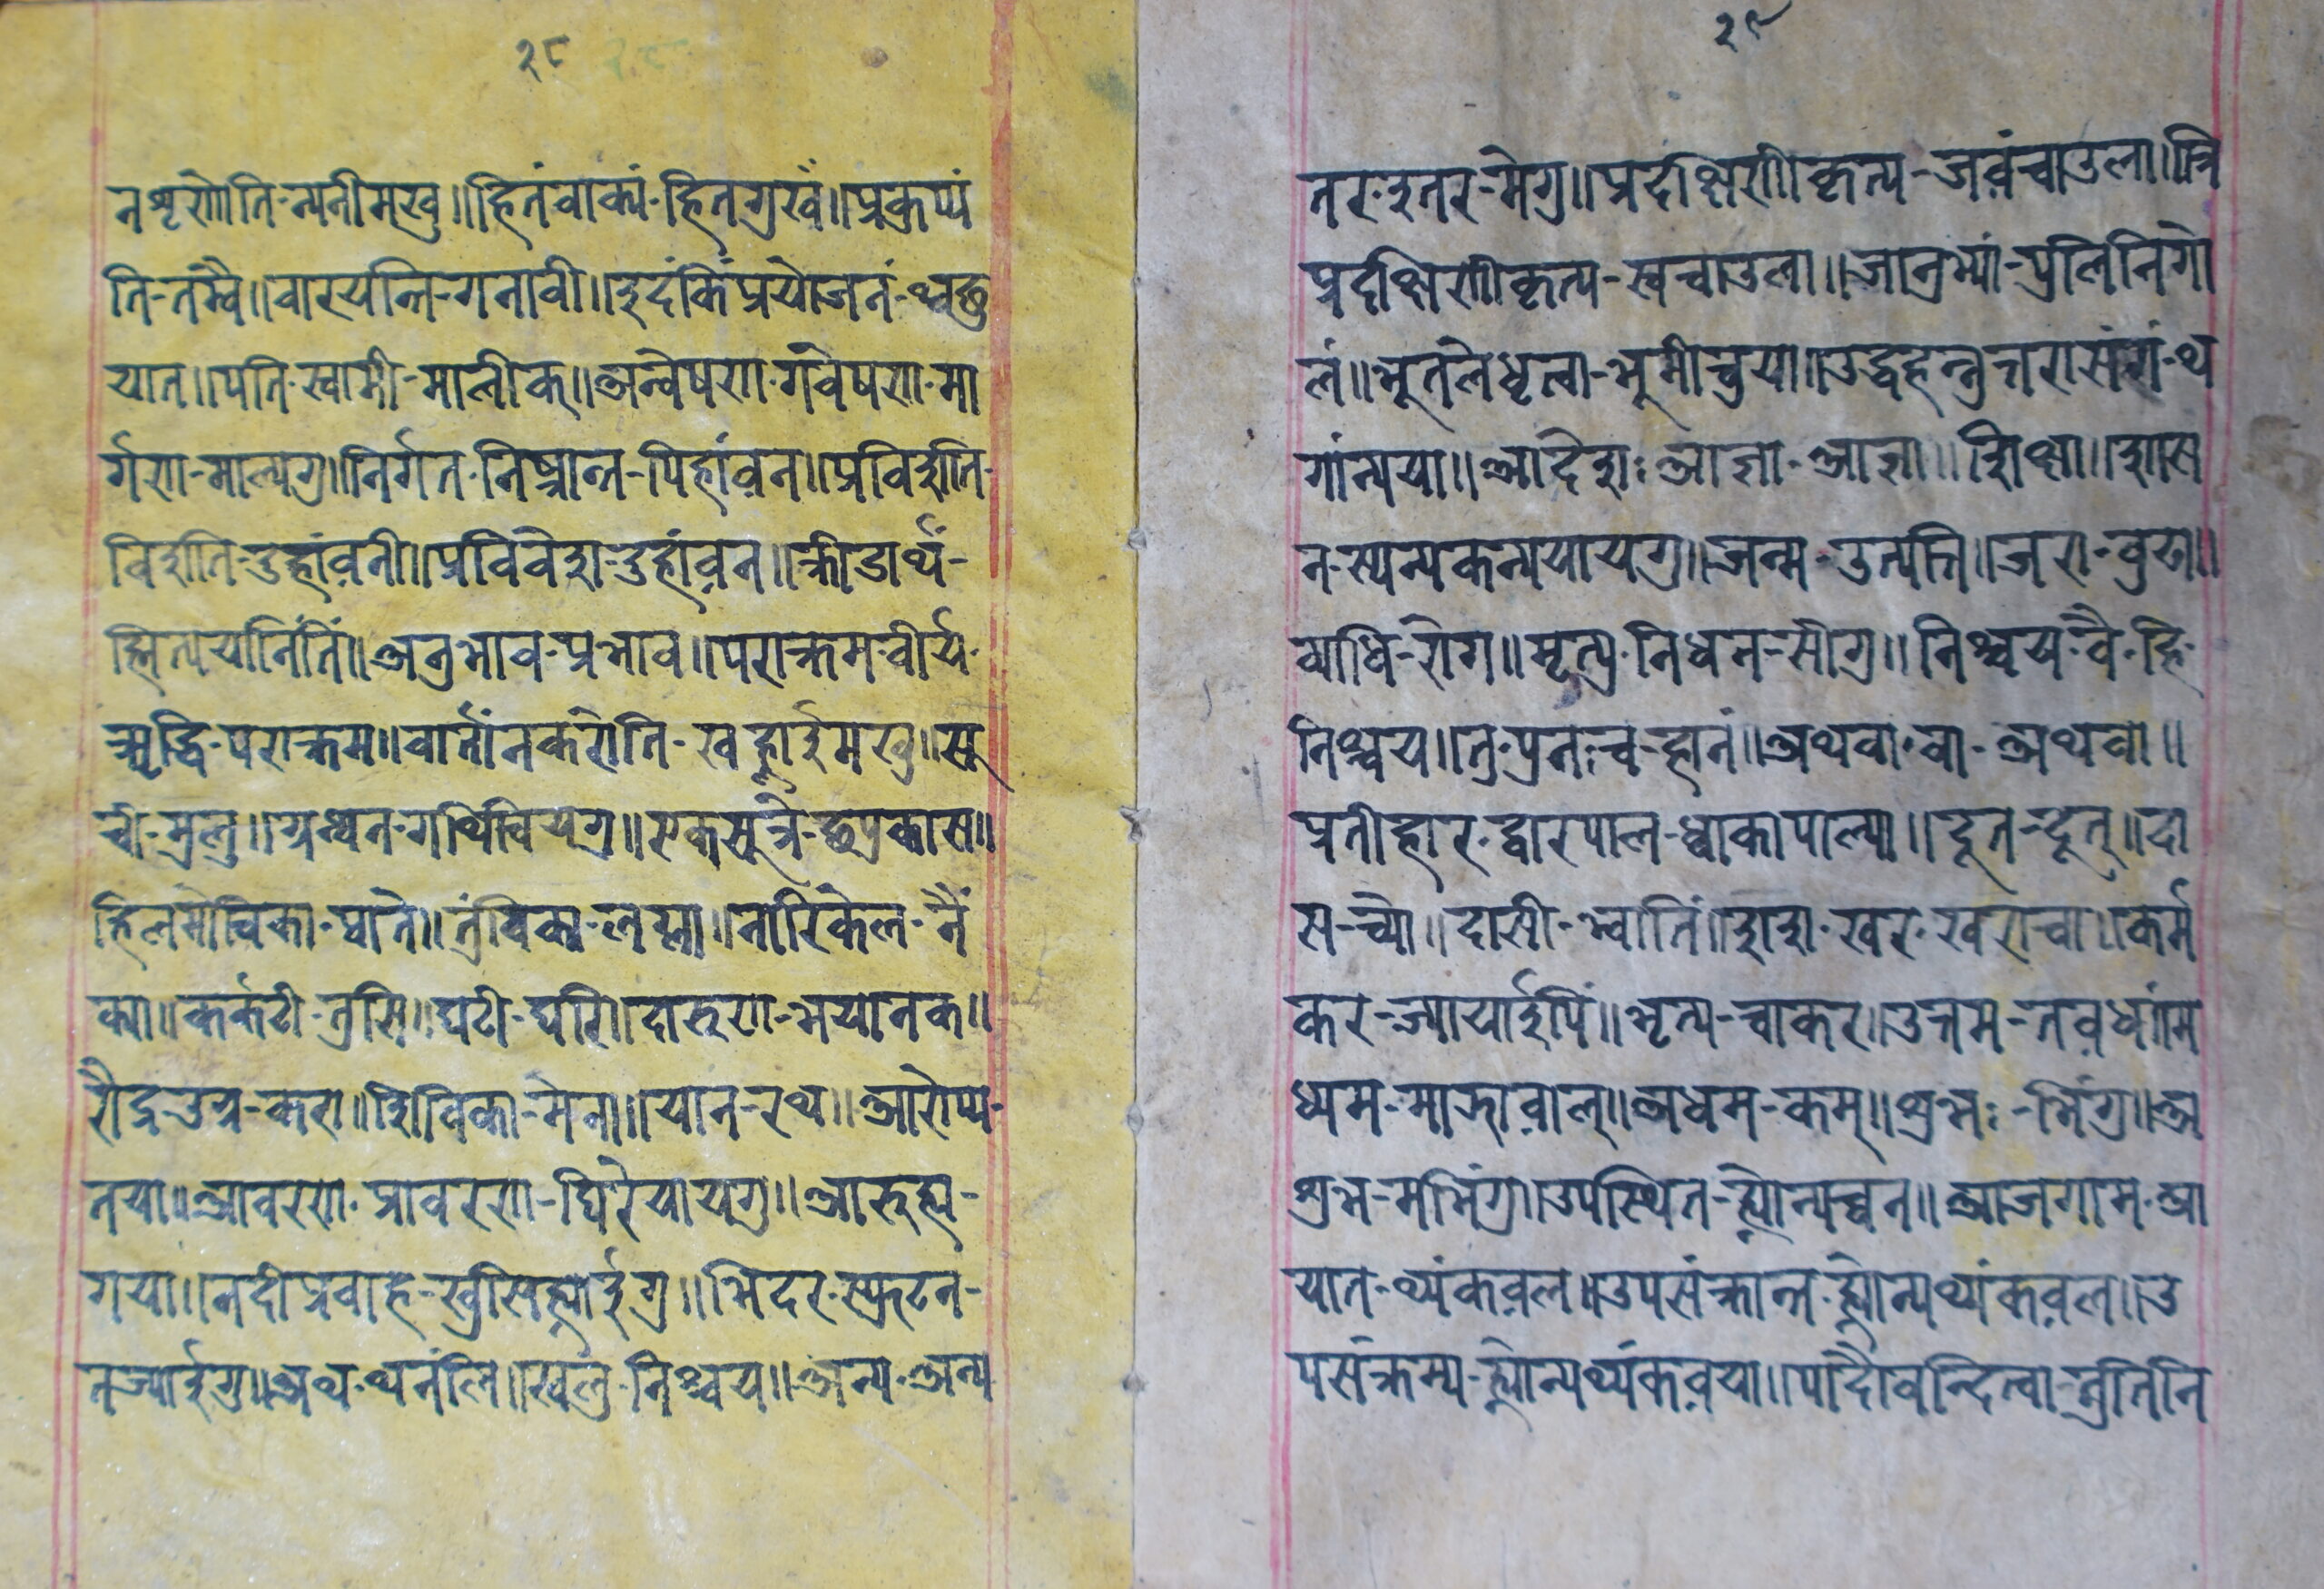 २८ २८
नशृणोति-न्यनीमखु॥हितंवाक्यं-हितगुखँ॥प्रकुप्यं
ति-तंम्वै॥वारयन्ति-गनावी॥इदंकिंप्रयोजनं-थ्वछु
यात॥पति-स्वामी-मालीक॥अन्वेषण-गवेषण-मा
र्गण-माल्यगु॥निर्गत-निष्क्रान्त-पिहांव़न॥प्रविशति-
विशति-दुहांव़नी॥प्रविवेश-दुहांव़न॥क्रीडार्थं-
ह्मित्ययानिंतिं॥अनुभाव-प्रभाव॥पराक्रम-वीर्य-
ऋद्धि-पराक्रम॥वार्तांनकरोति-खह्लाईमखु॥सू
ची-मुलु॥ग्रन्थन-गथिंचियगु॥एकसूत्रे-छपुकास॥
हिलमोचिका-घाते॥तुंविका-लय्का॥नारिकेल-नै
क्या॥कर्कटी-तुसि॥घटी-घरि॥दारुण-भयानक॥
रौद्र-उग्र-करा॥शिविका-मेना॥यान-रथ॥आरोप्य-
तया॥आवरण-प्रावरण-घिरेयायगु॥आरुह्य-
गया॥नदीप्रवाह-खुसिह्वाईगु॥भिदर-स्फुटन-
तज्याईगु॥अथ-थनंलि॥खलु-निश्चय॥अन्य-अन्य
२९
तर-इतर-मेगु॥प्रदक्षिणीकृत्य-जव़ंचाउला॥त्रि
प्रदक्षिणीकृत्य-स्वचाउला॥जानुभ्यां-पुलिनिगो
लं॥भूतलेधृत्वा-भूमीचुया॥उद्वहन्नुत्तरासंगं-थ
गांन्यया॥आदेशः आज्ञा-आज्ञा॥शिक्षा॥शास
न-स्यन्यकन्ययायगु॥जन्म-उत्पत्ति॥जरा-वुढा॥
व्याधि-रोग॥मृत्यु-निधन-सीगु॥निश्चय-वै-हि-
निश्चय॥तु-पुनःच-हानं॥अथवा-वा-अथवा॥
प्रतीहार-द्वारपाल-ध्वाकापाल्या॥दूत-दूत्॥दा
स-च्यो॥दासी-भ्वातिं॥शश-खर-खराचा॥कर्म
कर-ज्यायाईपिं॥भृत्य-चाकर॥उत्तम-तव़धांम
ध्यम-माझव़ाल्॥अधम-कम्॥शुभः-भिंगु॥अ
शुभ-मभिंगु॥उपस्थित-ह्योन्यच्वन॥आजगाम-आ
यात-थ्यंकव़ल॥उपसंक्रान्त-ह्योन्यथ्यंकव़ल॥उ
पसंक्रम्य-ह्योन्यथ्यंकव़या॥पादौवन्दित्वा-तुतिनि